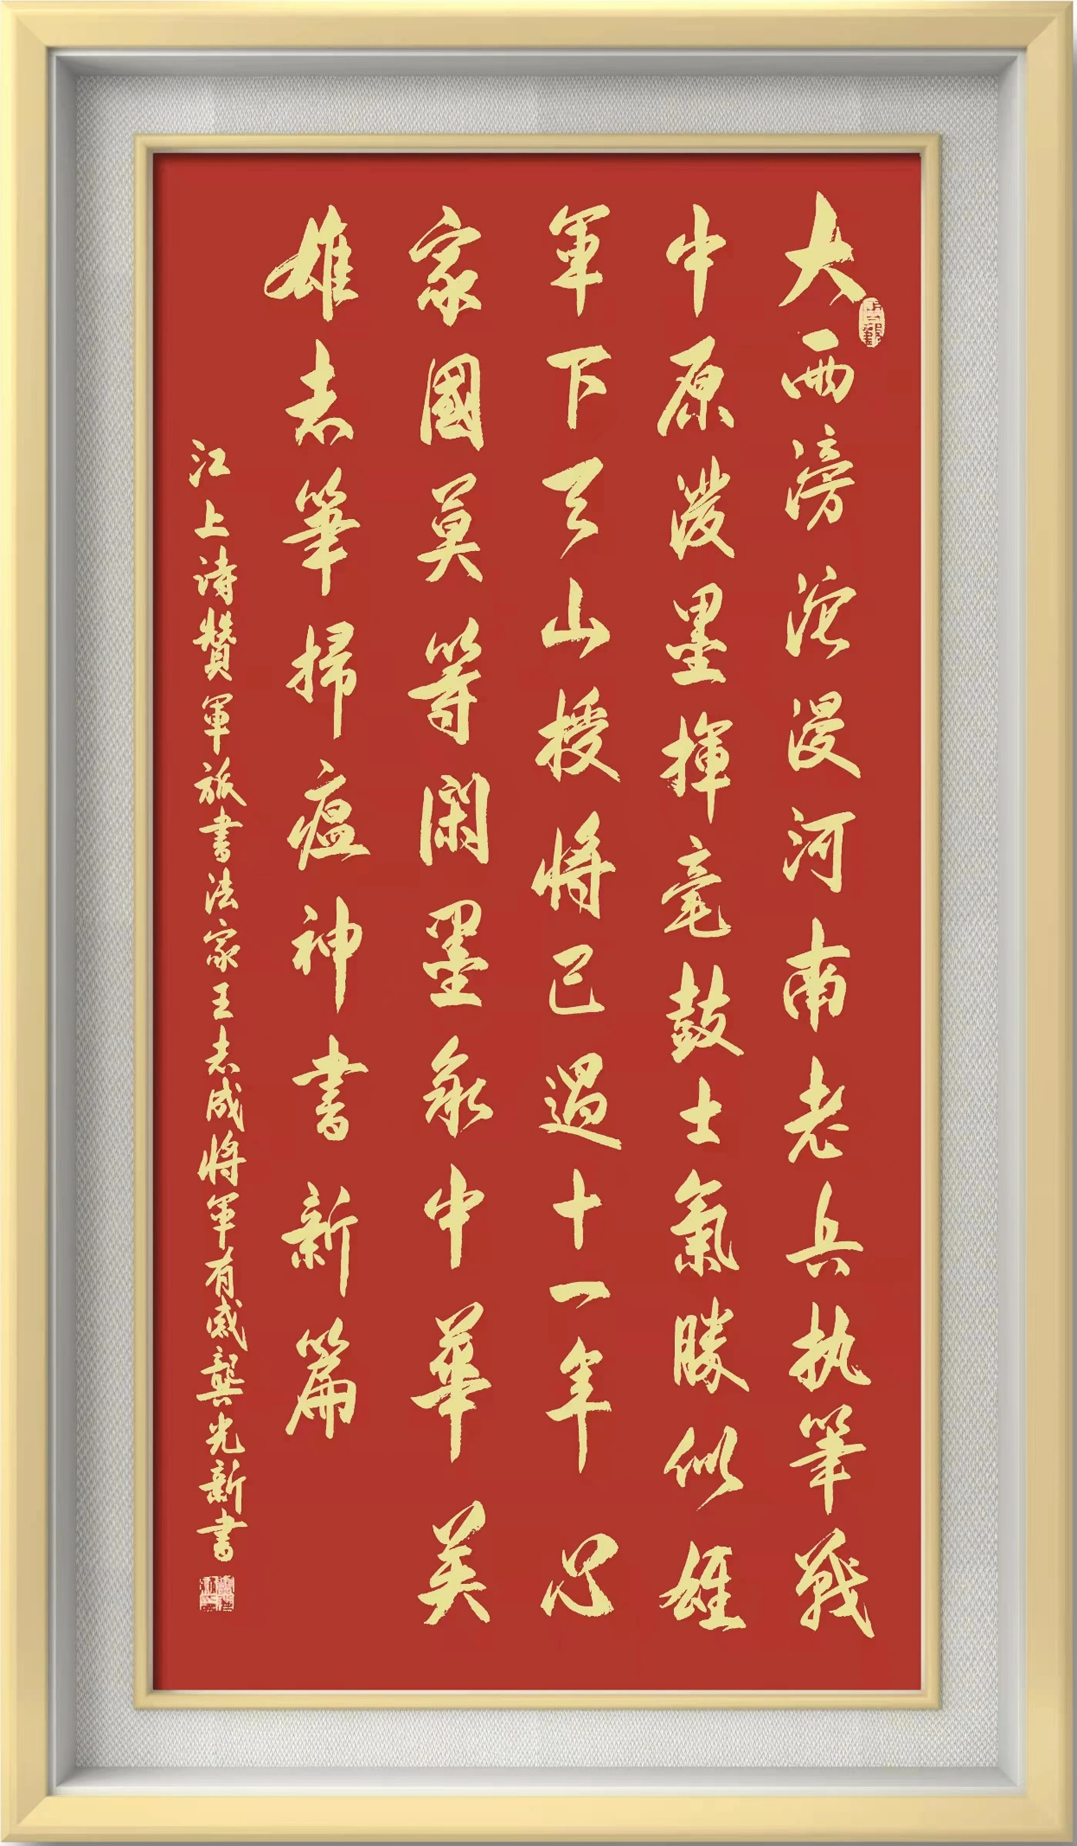 大西滂沱漫河南老兵执筆戰
中原潑墨揮毫鼓士氣勝似雄
軍下天山授將已過十一年心
家國莫等閑墨承中華美
雄志筆掃瘟神書新篇
江上诗贊軍旅書法家王志成將軍有感龔光新書